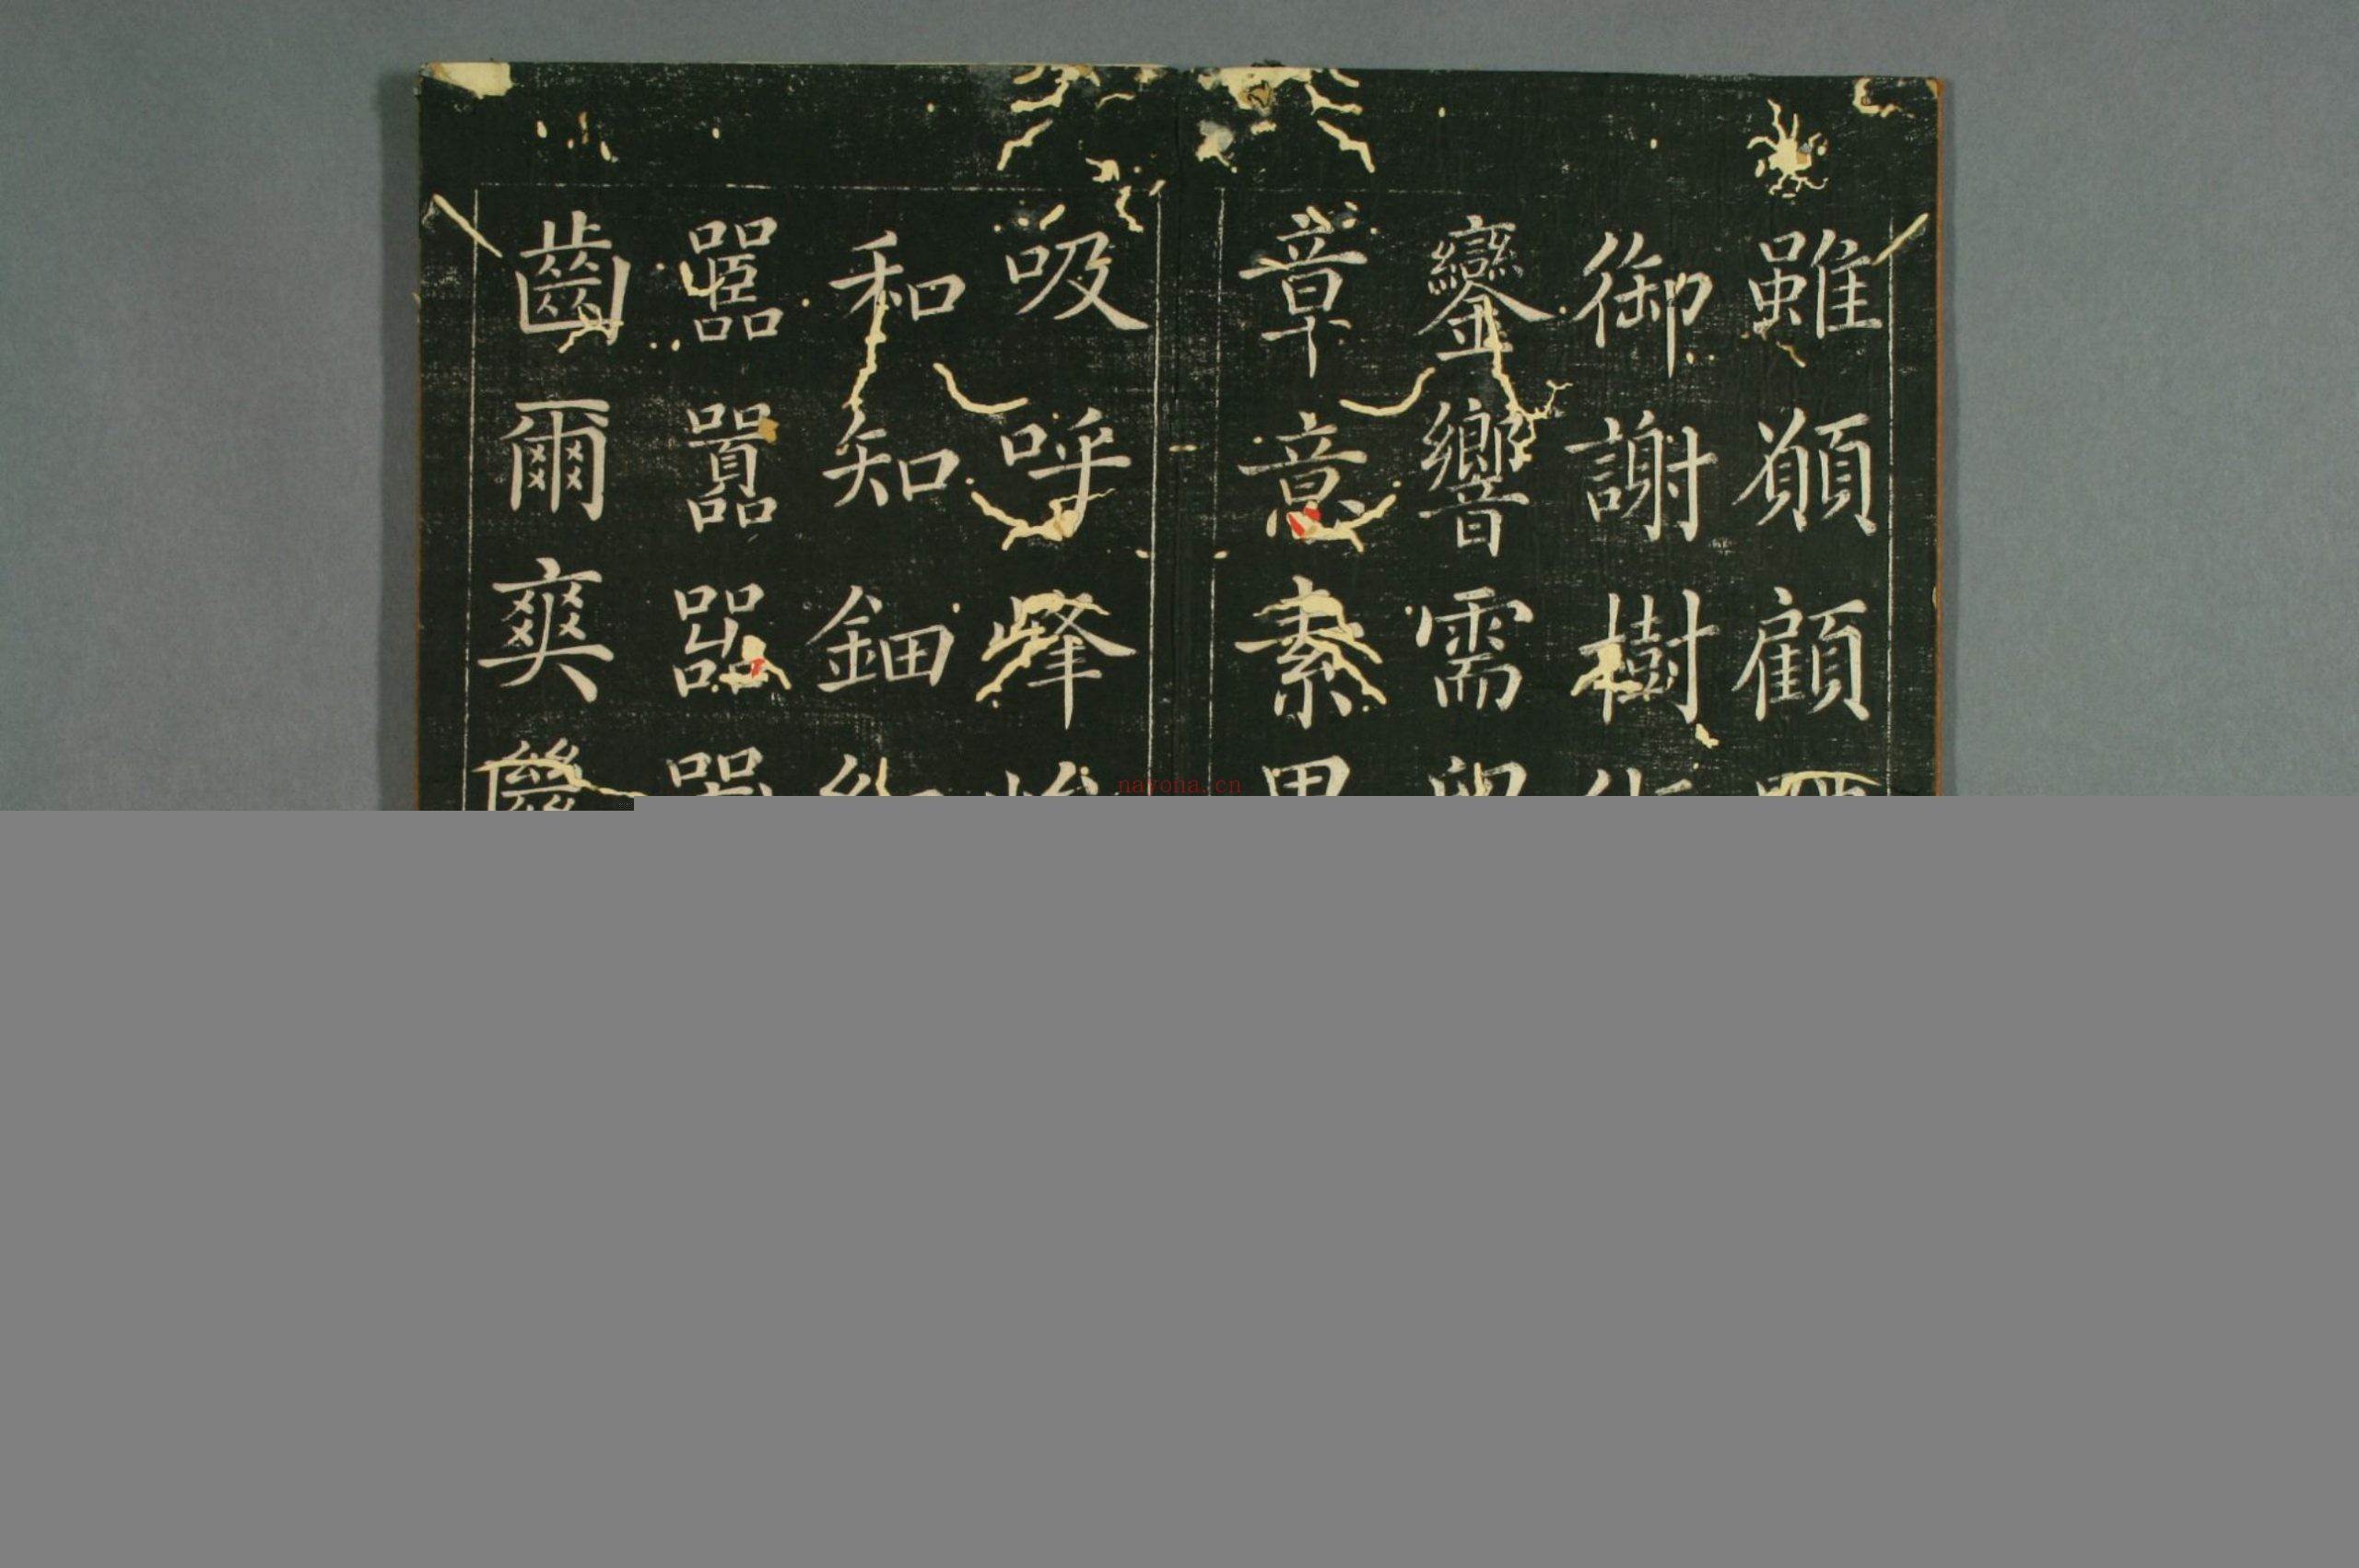 雖顧
御謝樹
鑾響需
章意素
吸呼峰
和知鈿
嚚囂噐
齒爾爽
nayona.cn